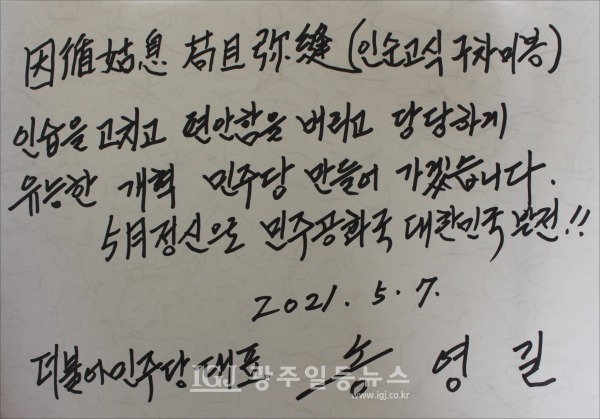 因循姑息 苟且弥縫(인순고식 구차미봉)
인습을 고치고 편안함을 버리고 당당하게
유능한 개혁 민주당 만들어 가겠습니다.
5月정신으로 민주공화국 대한민국 발전!!
2021. 5. 7.
더불어민주당 대표 송영길
IGJ 광주일등뉴스
www.igj.co.kr